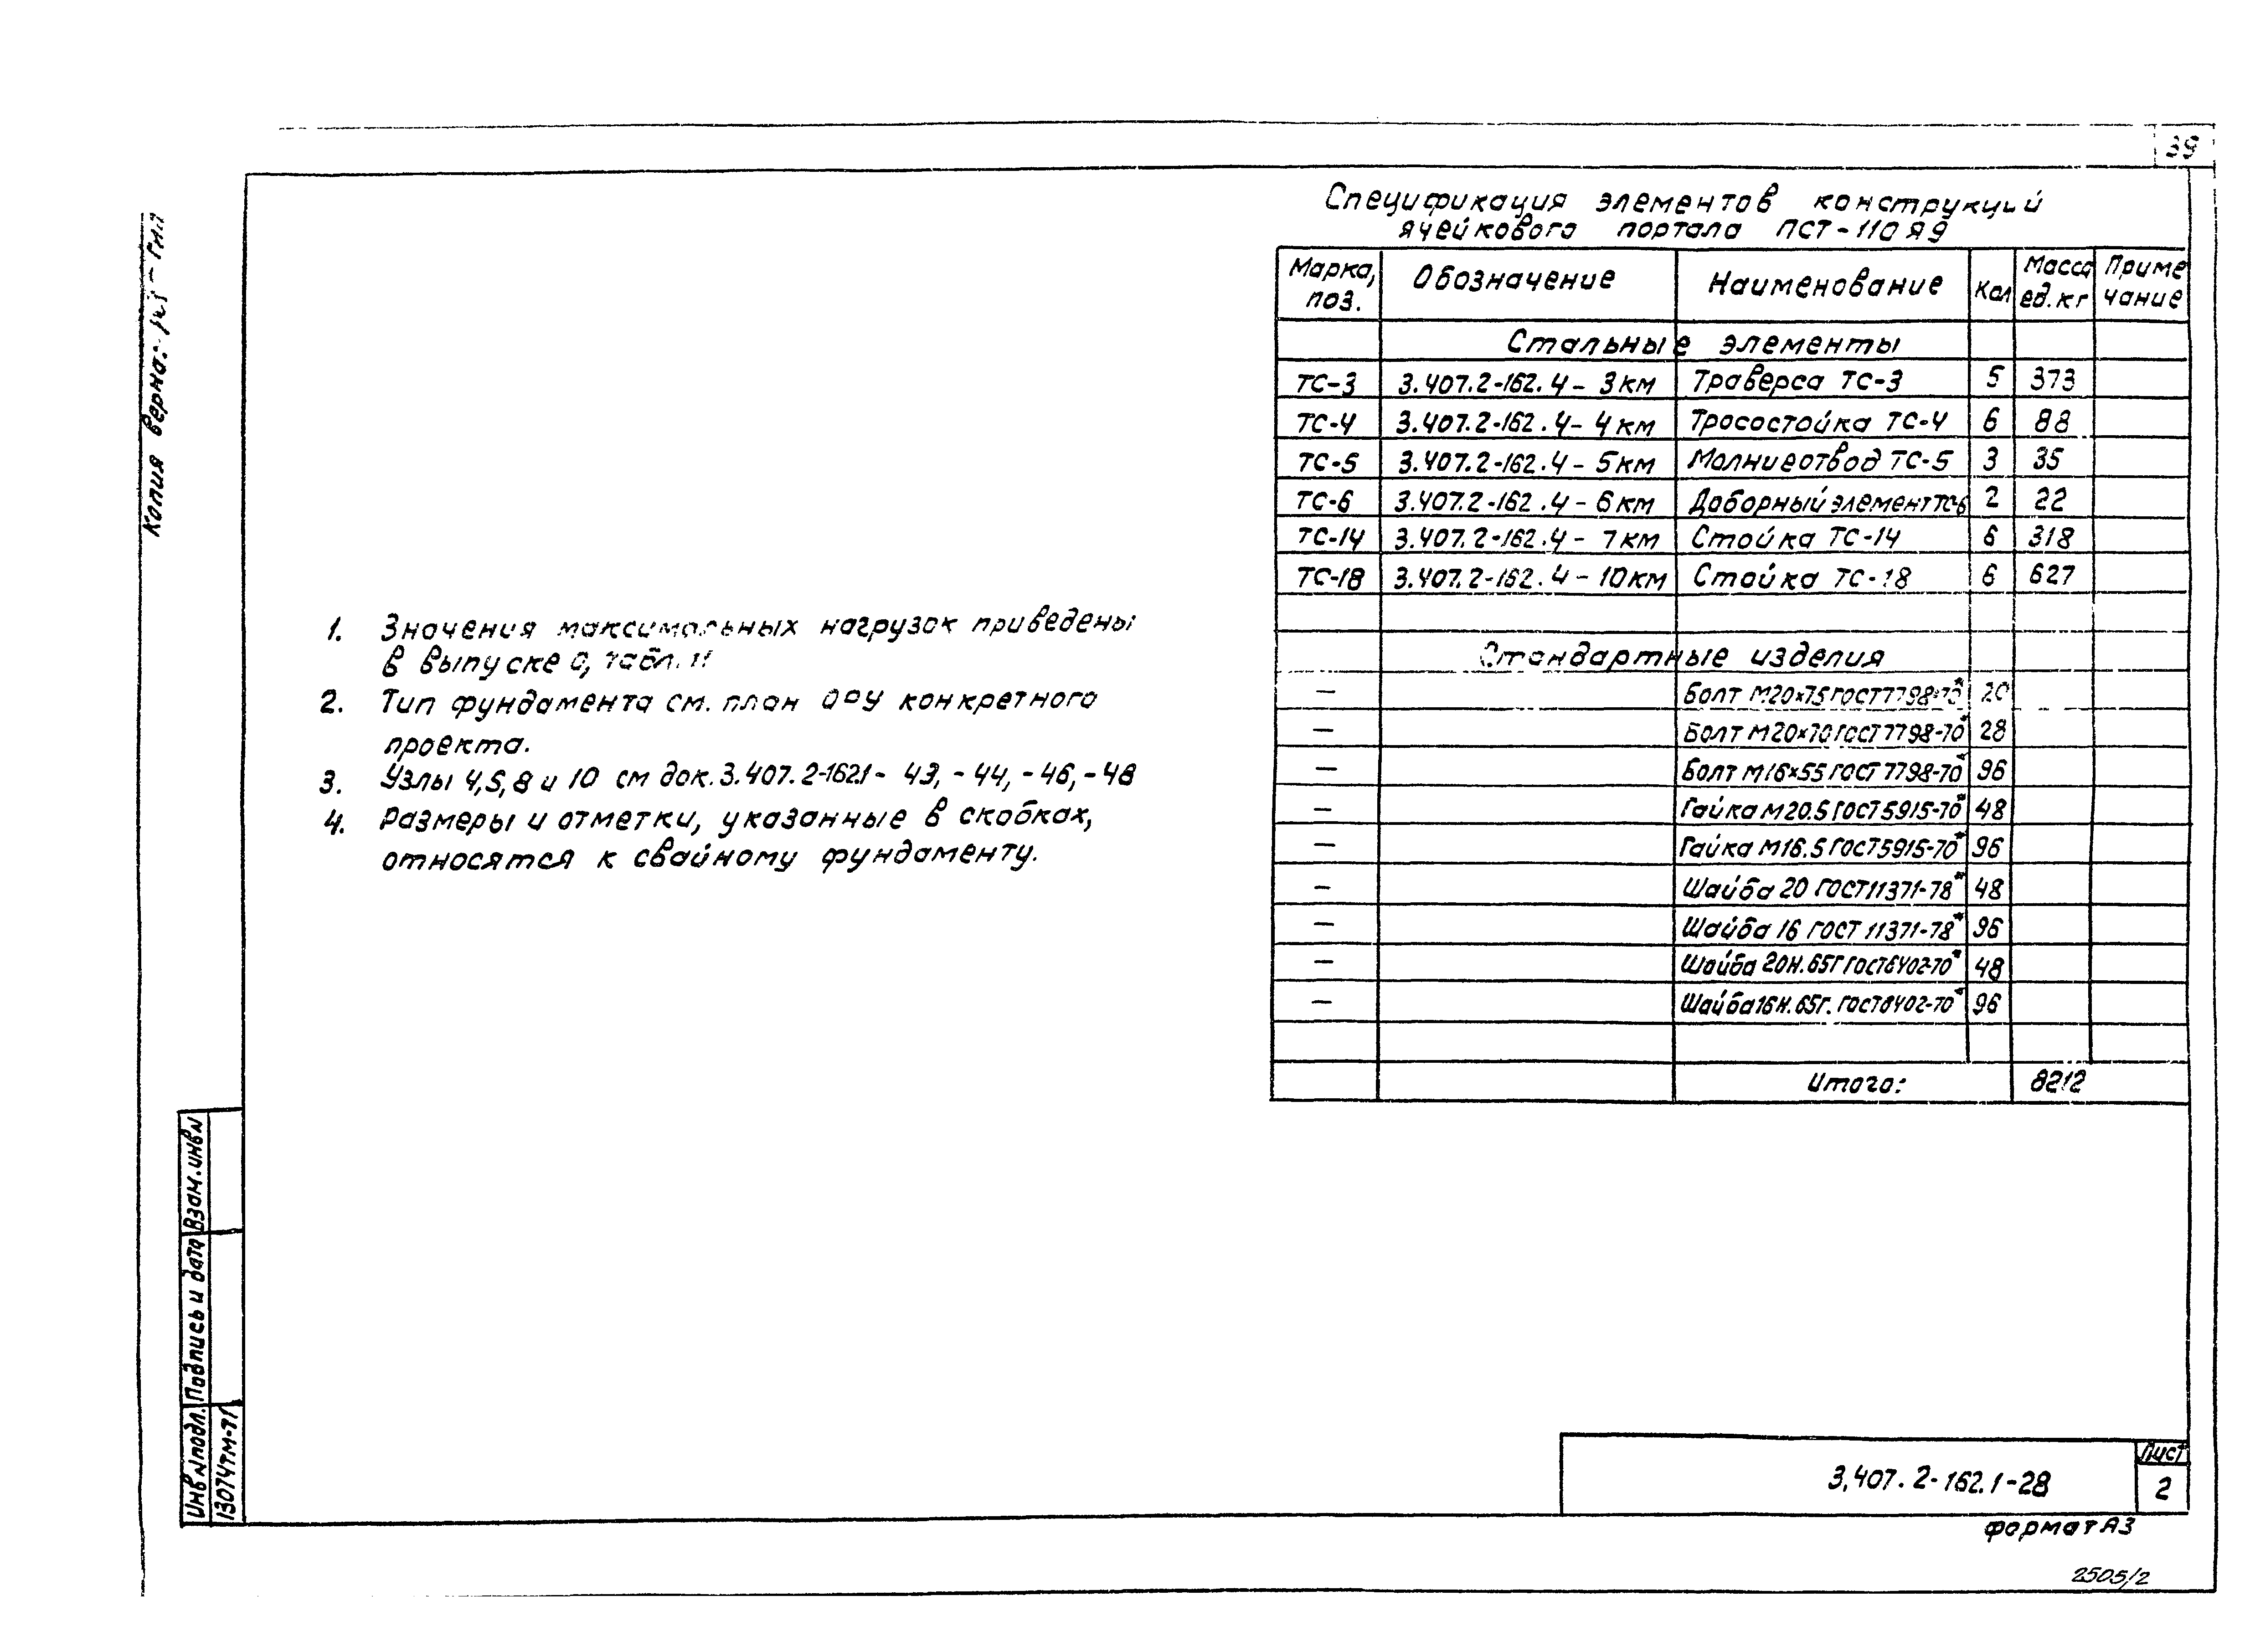 39
Копия верна:
Спецификация элементов конструкций
ячейкового портала ПСТ-110Я9
Марка, поз. Обозначение Наименование Кол Масса ед.кг Примечание
Стальные элементы
ТС-3 3.407.2-162.4-3км Траверса ТС-3 5 373
ТС-4 3.407.2-162.4-4км Тросостойка ТС-4 6 88
ТС-5 3.407.2-162.4-5км Молниеотвод ТС-5 3 35
ТС-6 3.407.2-162.4-6км Доборный элемент ТС-6 2 22
ТС-14 3.407.2-162.4-7км Стойка ТС-14 6 318
ТС-18 3.407.2-162.4-10км Стойка ТС-18 6 627
Стандартные изделия
— Болт М20×75 ГОСТ 7798-70* 20
— Болт М20×70 ГОСТ 7798-70* 28
— Болт М16×55 ГОСТ 7798-70* 96
— Гайка М20.5 ГОСТ 5915-70* 48
— Гайка М16.5 ГОСТ 5915-70* 96
— Шайба 20 ГОСТ 11371-78* 48
— Шайба 16 ГОСТ 11371-78* 96
— Шайба 20Н.65Г ГОСТ 6402-70* 48
— Шайба 16Н.65Г. ГОСТ 6402-70* 96
Итого: 8212
1. Значения максимальных нагрузок приведены
в выпуске 0, табл. 11
2. Тип фундамента см. план ОРУ конкретного
проекта.
3. Узлы 4,5,8 и 10 см док. 3.407.2-162.1- 43, -44, -46, -48
4. Размеры и отметки, указанные в скобках,
относятся к свайному фундаменту.
Взам. инв N
Подпись и дата
Инв N подл.
13074тм-т1
3.407.2-162.1-28
Лист
2
формат А3
2505/2